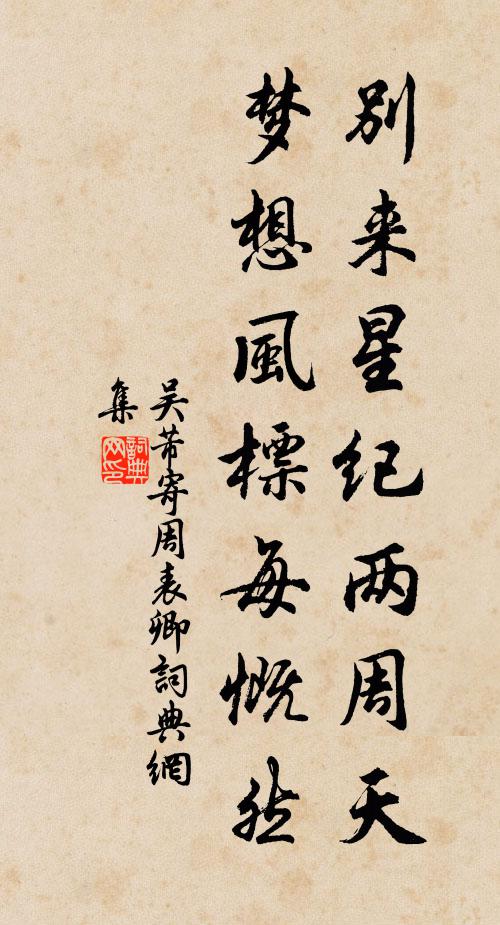 别来星纪两周天
梦想風標每慨然
吴芾寄周表卿詞典網
集
詞典
网印